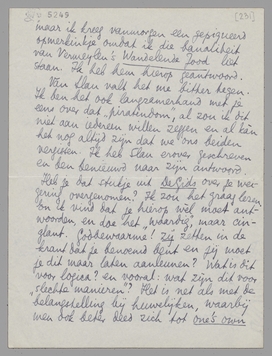 5243
(23)
maar ik kreeg vanmorgen een gepiqueerd
opmerkinkje omdat ik die banaliteit
van Vermeylen's Wandelende Jood liet
staan. Ik heb hem hierop geantwoord.
Van Elsen valt het me bitter tegen.
Ik ben het ook langzamerhand met je
eens over dat "piratendom", al zou ik dit
niet aan iedereen willen zeggen en al kan
het nog altijd zijn dat we ons beiden
vergissen. Ik heb Elsen erover geschreven
en ben benieuwd naar zijn antwoord.
Heb je dat stukje uit De Gids over je
overgenomen? Ik zou het graag lezen
en ik vind dat je hierop wel moet ant-
woorden en doe het "waardig", maar cin-
glant. Godbewaarme! Zij zetten in de
krant dat je benoemd bent en jij moet
je dit maar laten aanleunen? Wat is dit
voor logica? en vooral: wat zijn dit voor
"slechte manieren"? Het is net als met de
belangstelling bij huwelijken, waarbij
men ook beter deed zich tot one's own